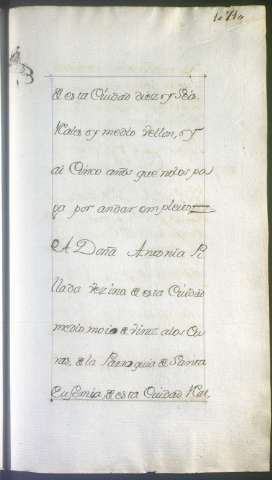 & esta Ciudad diez y seis
Reales y medio vellon, y
ai Cinco años que no los pa
ga por andar em pleitos =
A Doña Antonia Pi
llada vezina & esta Ciudad
medio moio & vino a los Cu
ras, & la Parroquia & Santa
Eufemia, & esta Ciudad